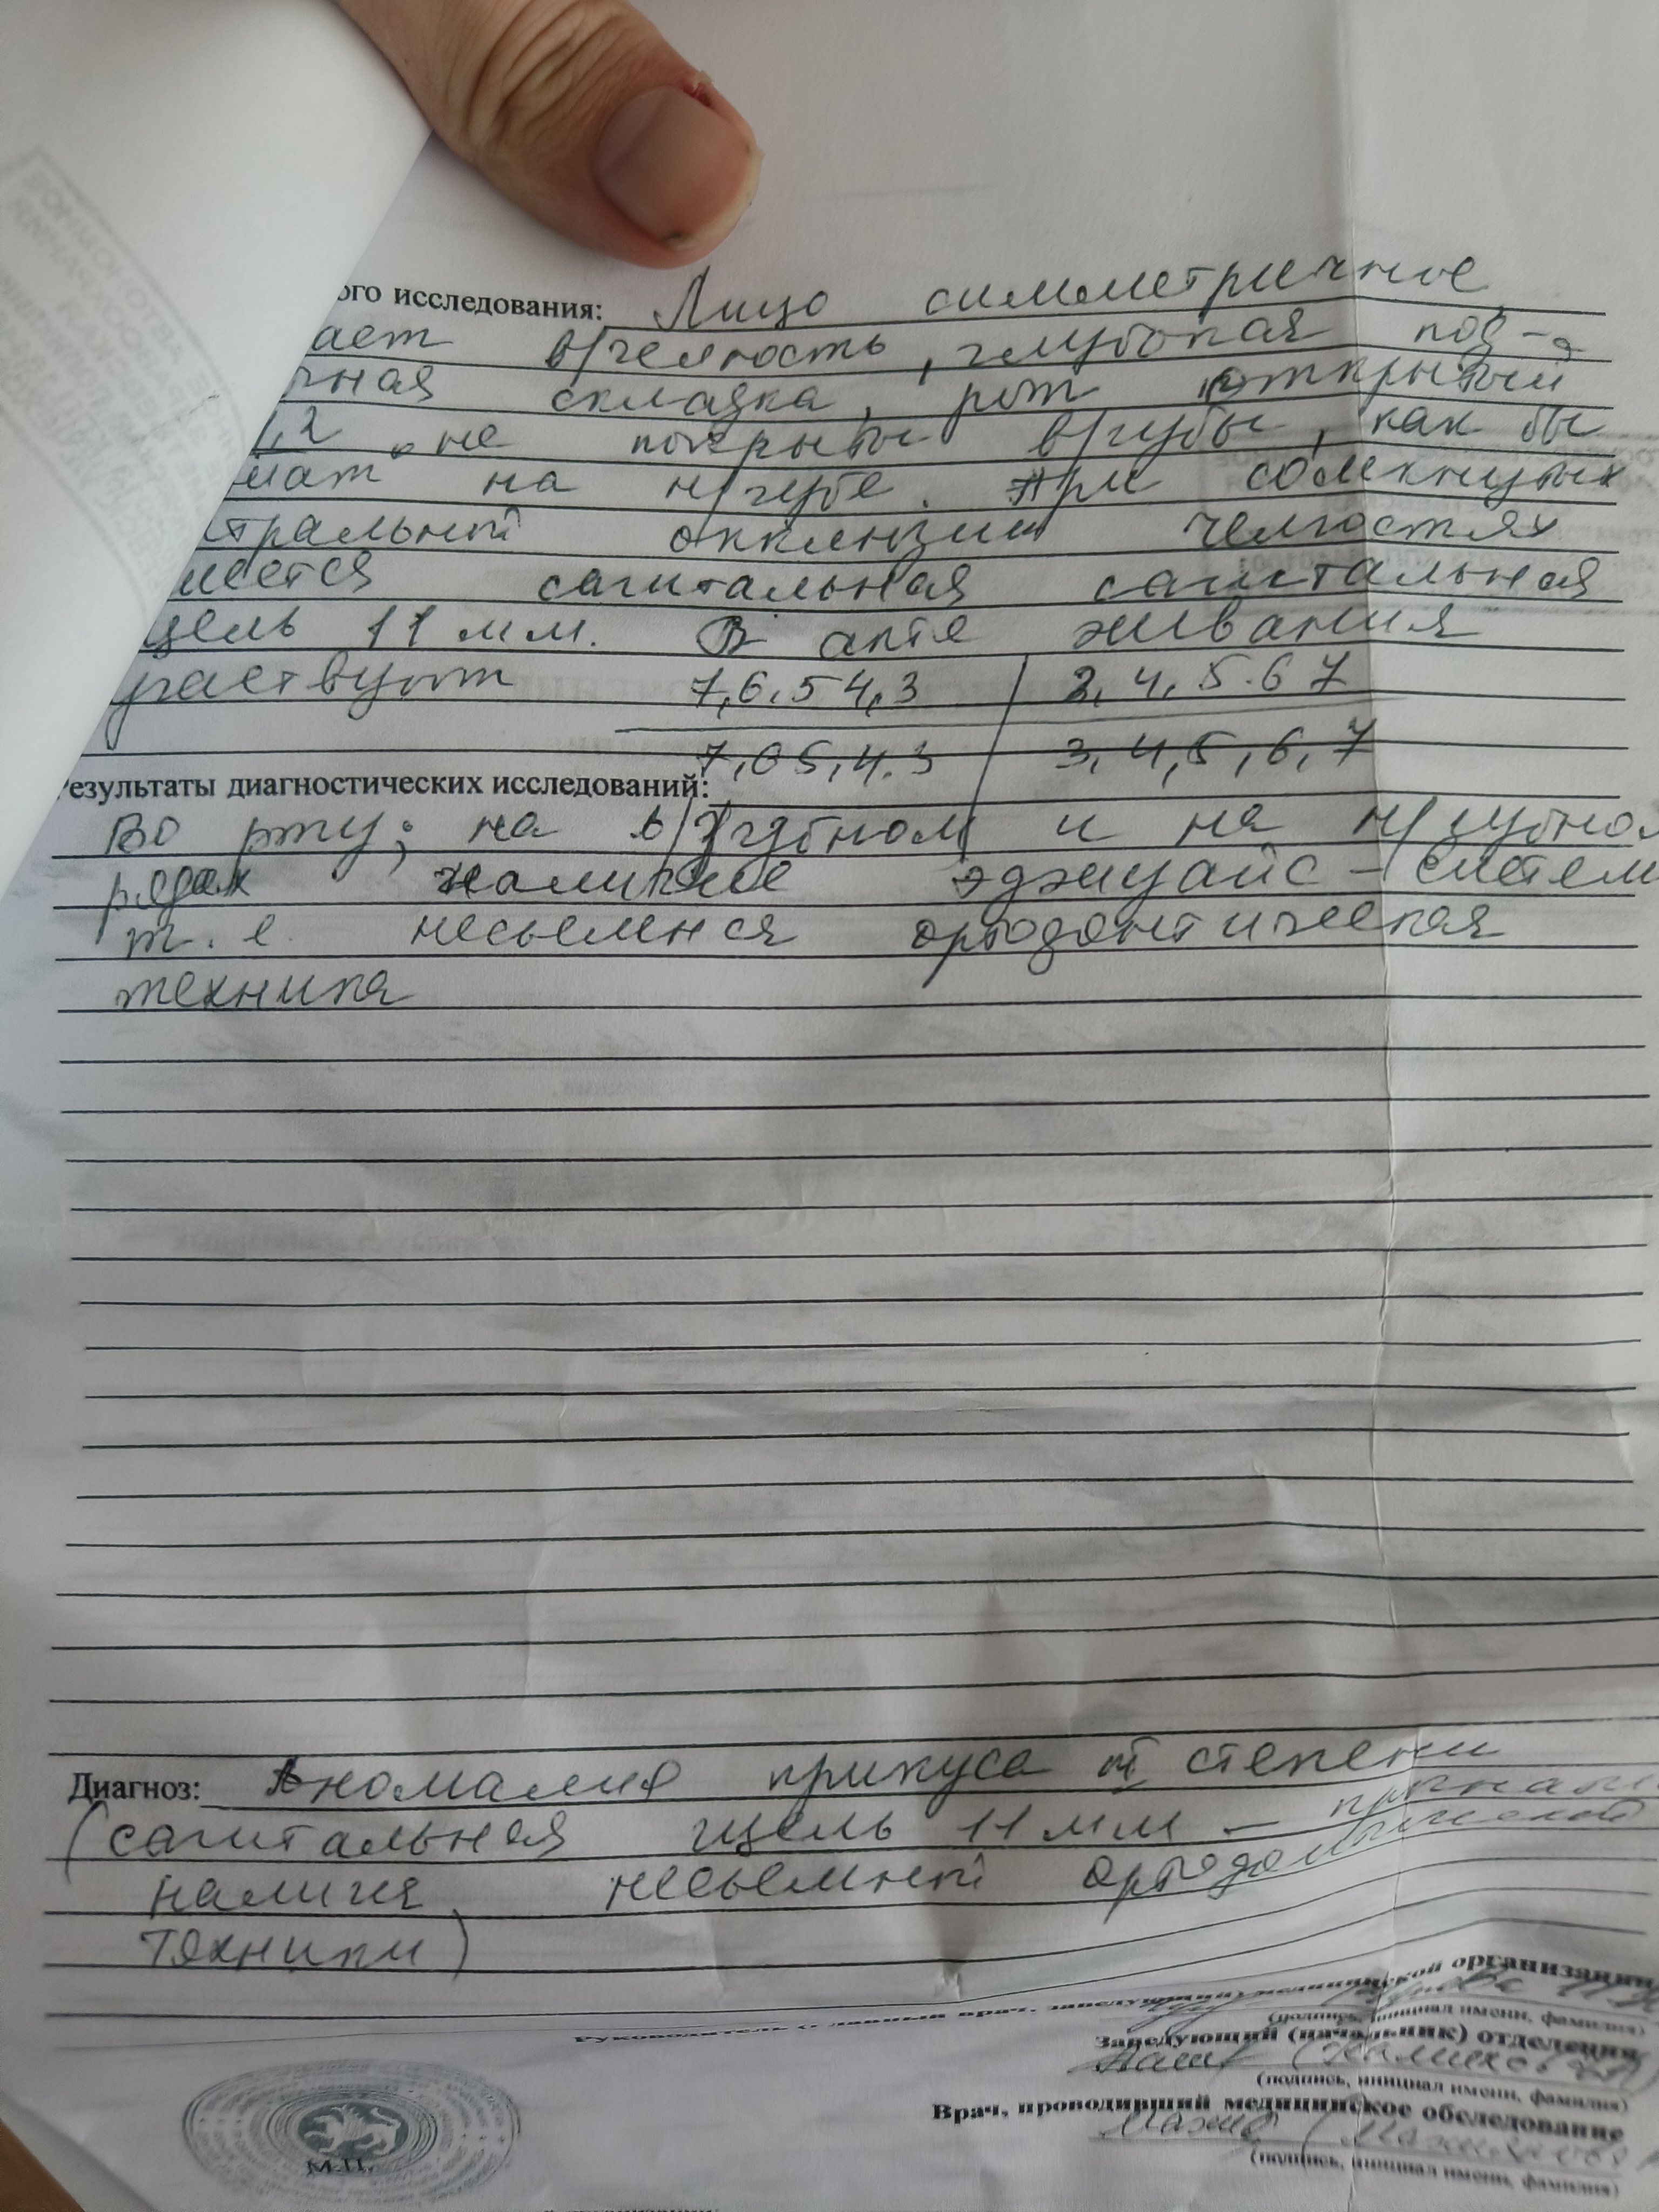 ого исследования: Лицо симметричное
ает в/челюсть, глубокая под-
чная складка, рот открытый
1,2 не покрыты в/губы, как бы
на н/губе. При сомкнутых
тральной окклюзии челюстях
меется сагитальная сагитальная
щель 11 мм. В акте жевания
участвуют 7,6.5 4,3 3,4,5.6 7
7,6 5,4.3 3,4,5,6,7
Результаты диагностических исследований:
Во рту; на в/зубном и на н/зубно
рядах наличие эджуайс-систем
т.е. несьемная ортодонтическая
техника
Диагноз: Аномалия прикуса II степени
(сагитальная щель 11 мм –
наличия несьемной ортодонтической
техники)
Руководитель (главный врач, заведующий) медицинской организации
(подпись, инициал имени, фамилия)
Заведующий (начальник) отделения
(подпись, инициал имени, фамилия)
Врач, проводивший медицинское обследование
(подпись, инициал имени, фамилия)
М.П.